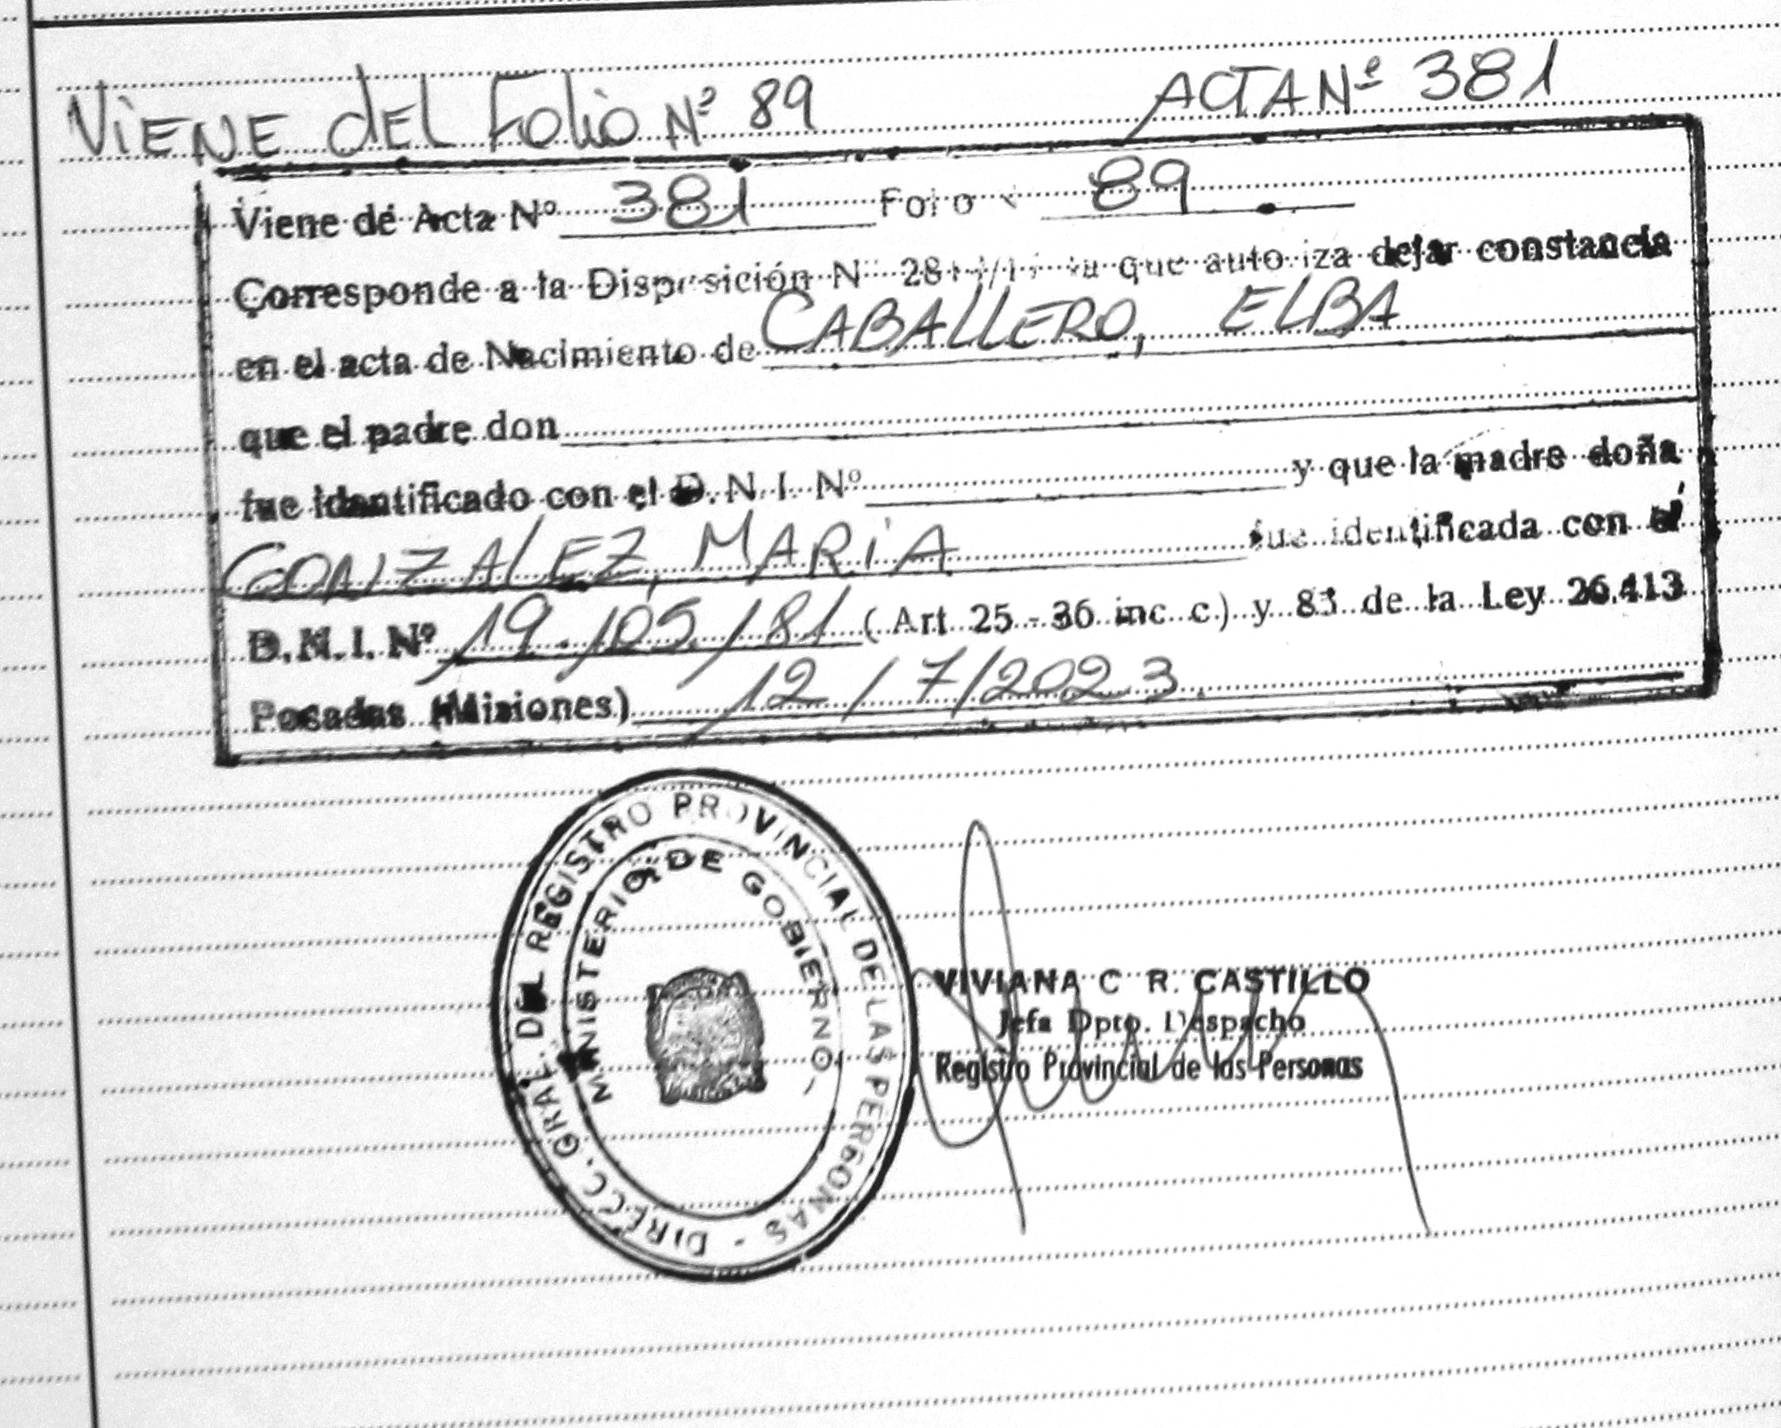 ViENE dEL Folio Nº 89 ACTA Nº 381
Viene de Acta Nº 381 Folio 89
Corresponde a la Disposición Nº que autoriza dejar constancia
en el acta de Nacimiento de CABALLERO, ELBA
que el padre don
fue identificado con el D.N.I. Nº y que la madre doña
GONZALEZ, MARIA fue identificada con el
D.N.I. Nº 19./05./81 (Art 25 - 36 inc c.) y 83 de la Ley 26.413
Posadas (Misiones) 12 / 7/2023.
DIRECC. GRAL. DEL REGISTRO PROVINCIAL DE LAS PERSONAS -
MINISTERIO DE GOBIERNO -
VIVIANA C R. CASTILLO
Jefa Dpto. Despacho
Registro Provincial de las Personas